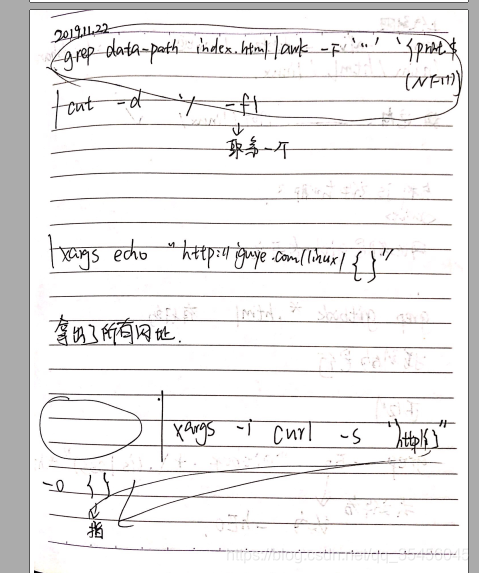 2019.11.22
grep data-path index.html | awk -F '"' '{print $
(NF-1)}
| cut -d '/' -f1
↓
取第一个
| xargs echo "http://iguye.com/linux/{}"
拿出了所有网址.
| xargs -i curl -s "http/{}"
-o {}
↓
指